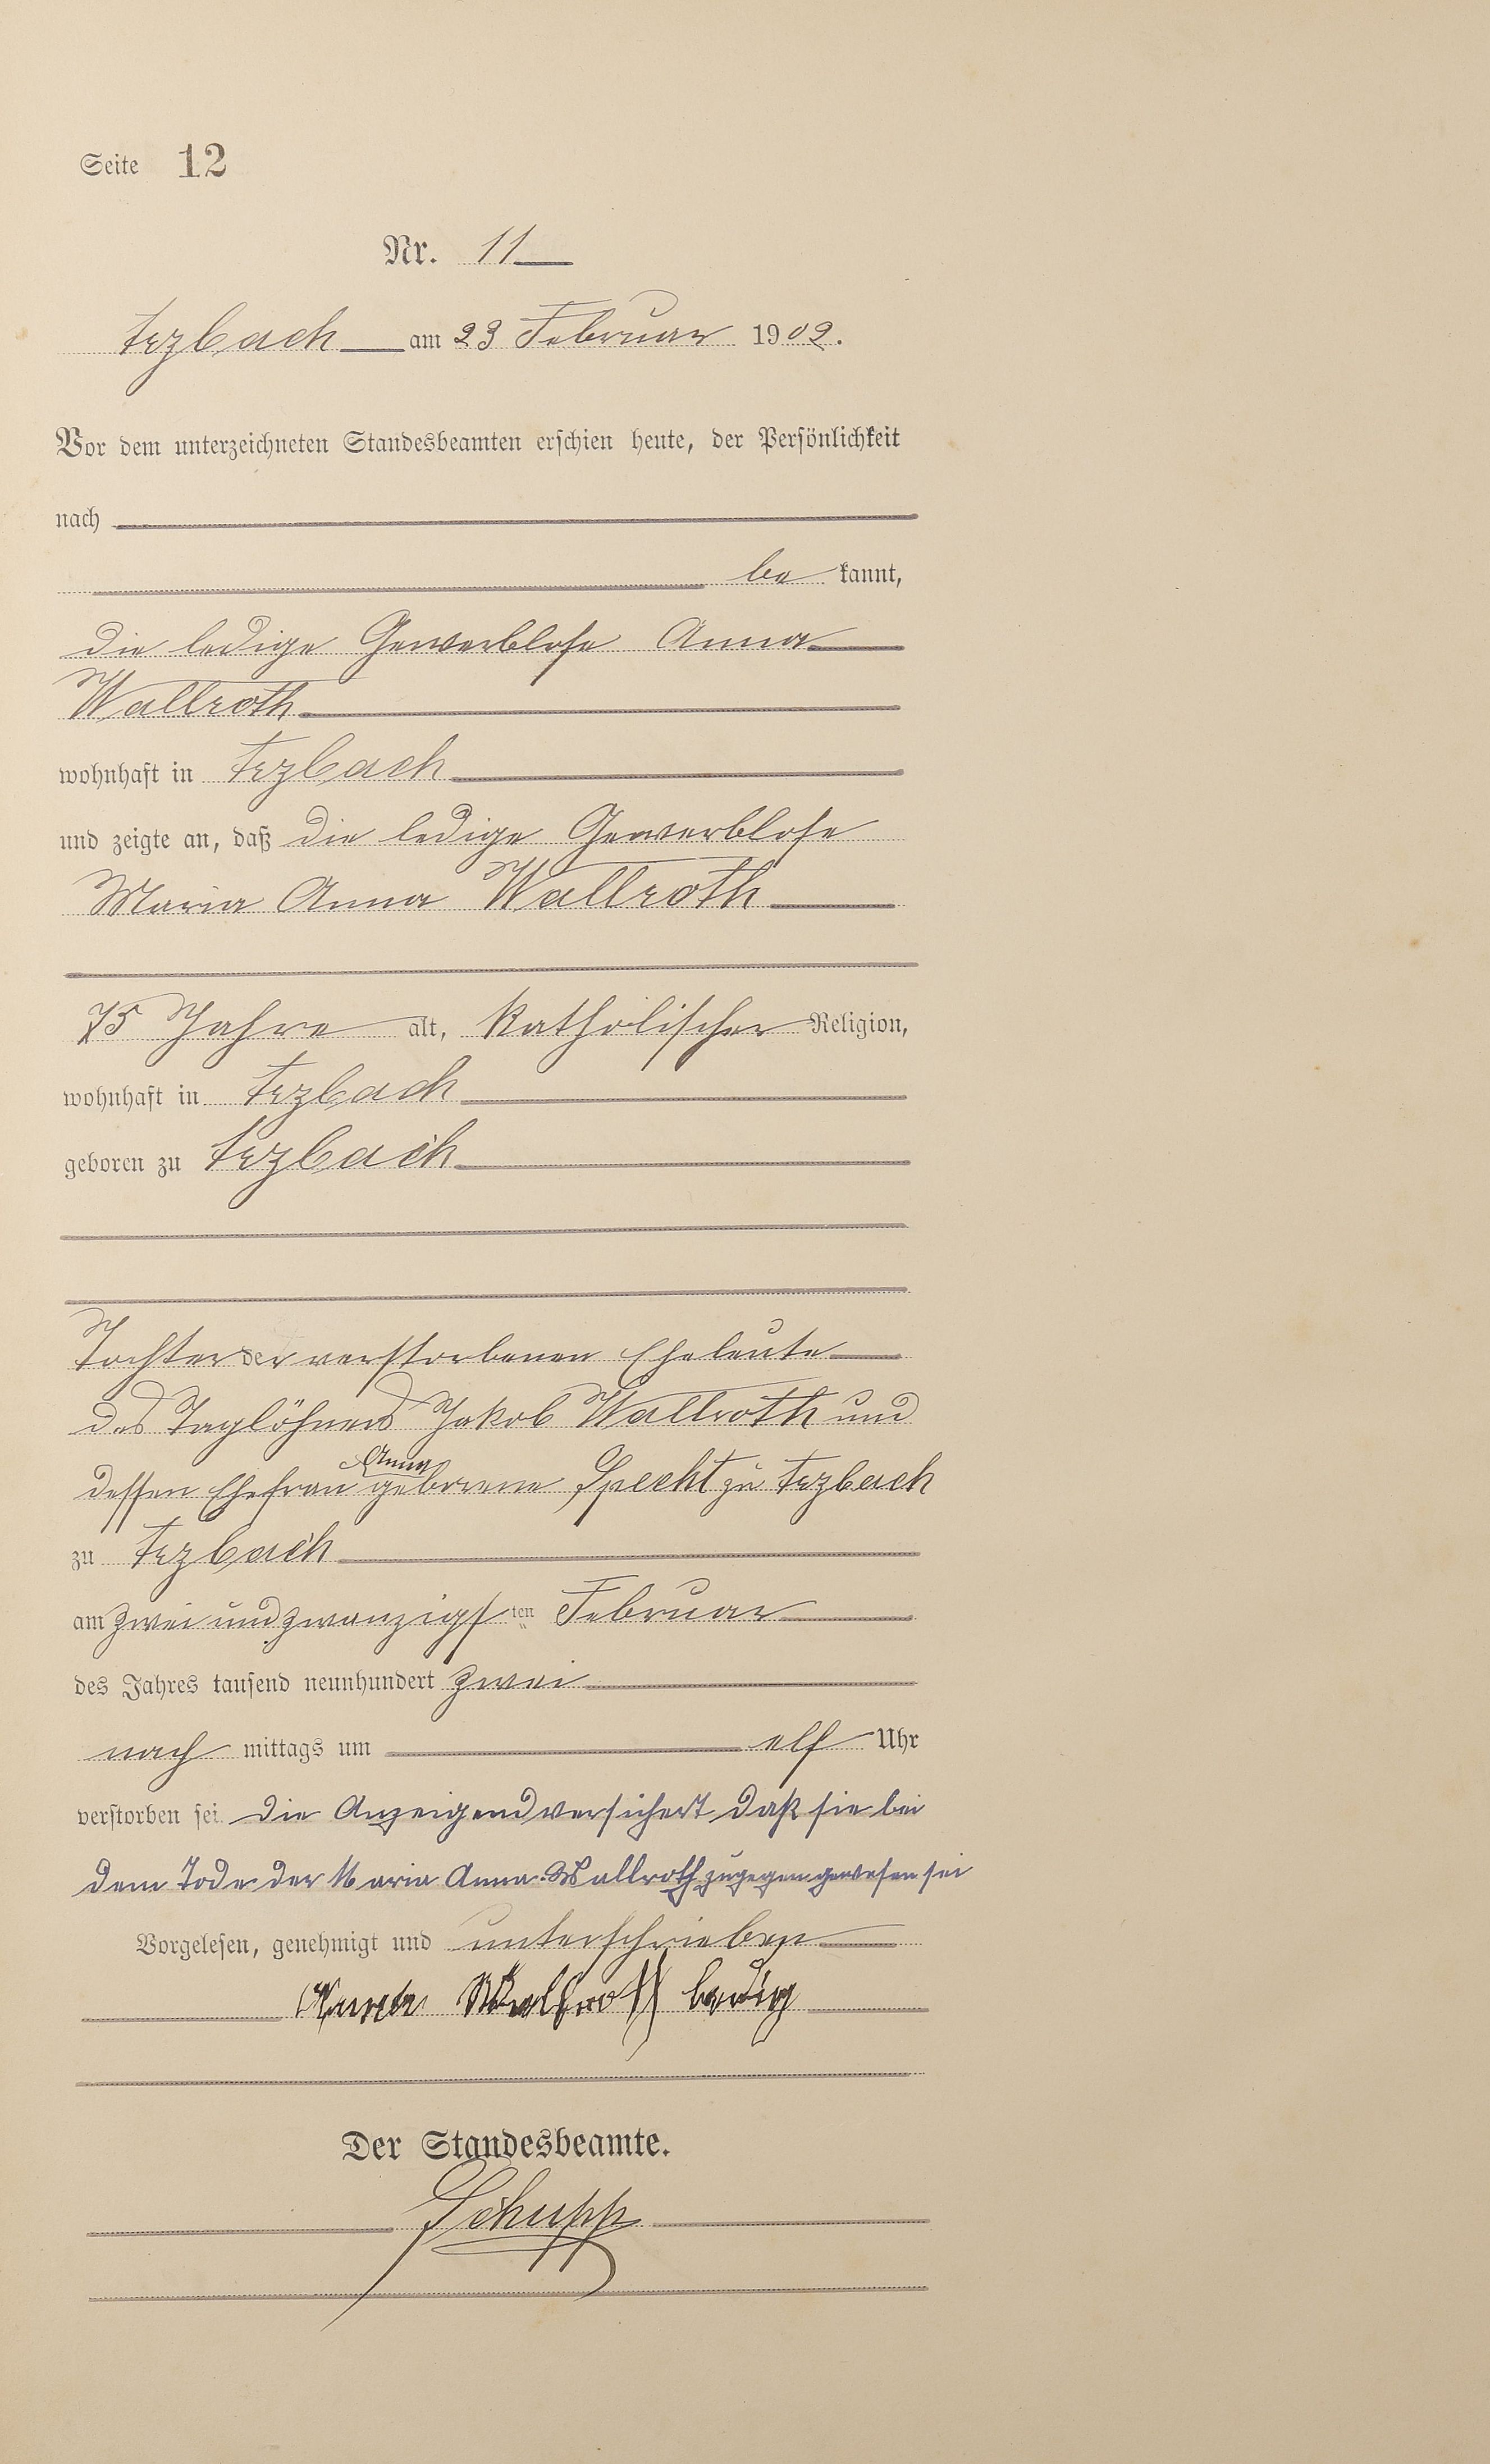 Seite 12
Nr. 11
Arzbach am 23 Februar 1902.
Vor dem unterzeichneten Standesbeamten erschien heute, der Persönlichkeit
nach
be kannt,
die ledige Gewerblose Anna
Wallroth
wohnhaft in Arzbach
und zeigte an, daß die ledige Gewerblose
Maria Anna Wallroth
75 Jahre alt, katholischer Religion,
wohnhaft in Arzbach
geboren zu Arzbach
Tochter der verstorbenen Eheleute
des Taglöhners Jakob Wallroth und
dessen Ehefrau Anna geborene Specht zu Arzbach
zu Arzbach
am zwei und zwanzigsten Februar
des Jahres tausend neunhundert zwei
nach mittags um elf Uhr
verstorben sei. Die Anzeigend versichert daß sie bei
dem Tode der Maria Anna Wallroth zugegen gewesen sei
Vorgelesen, genehmigt und unterschrieben
Anna Wallroth ledig
Der Standesbeamte.
Schupp